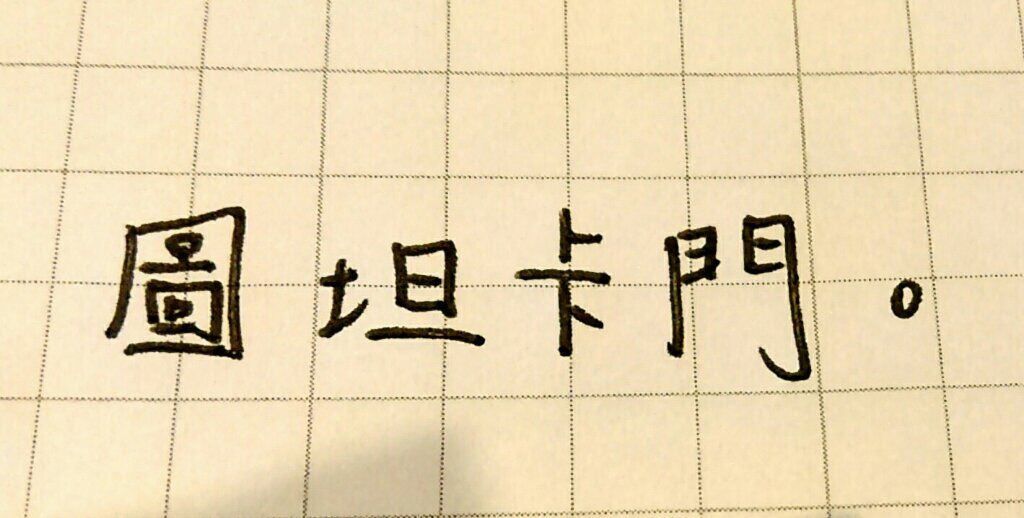 圖坦卡門。